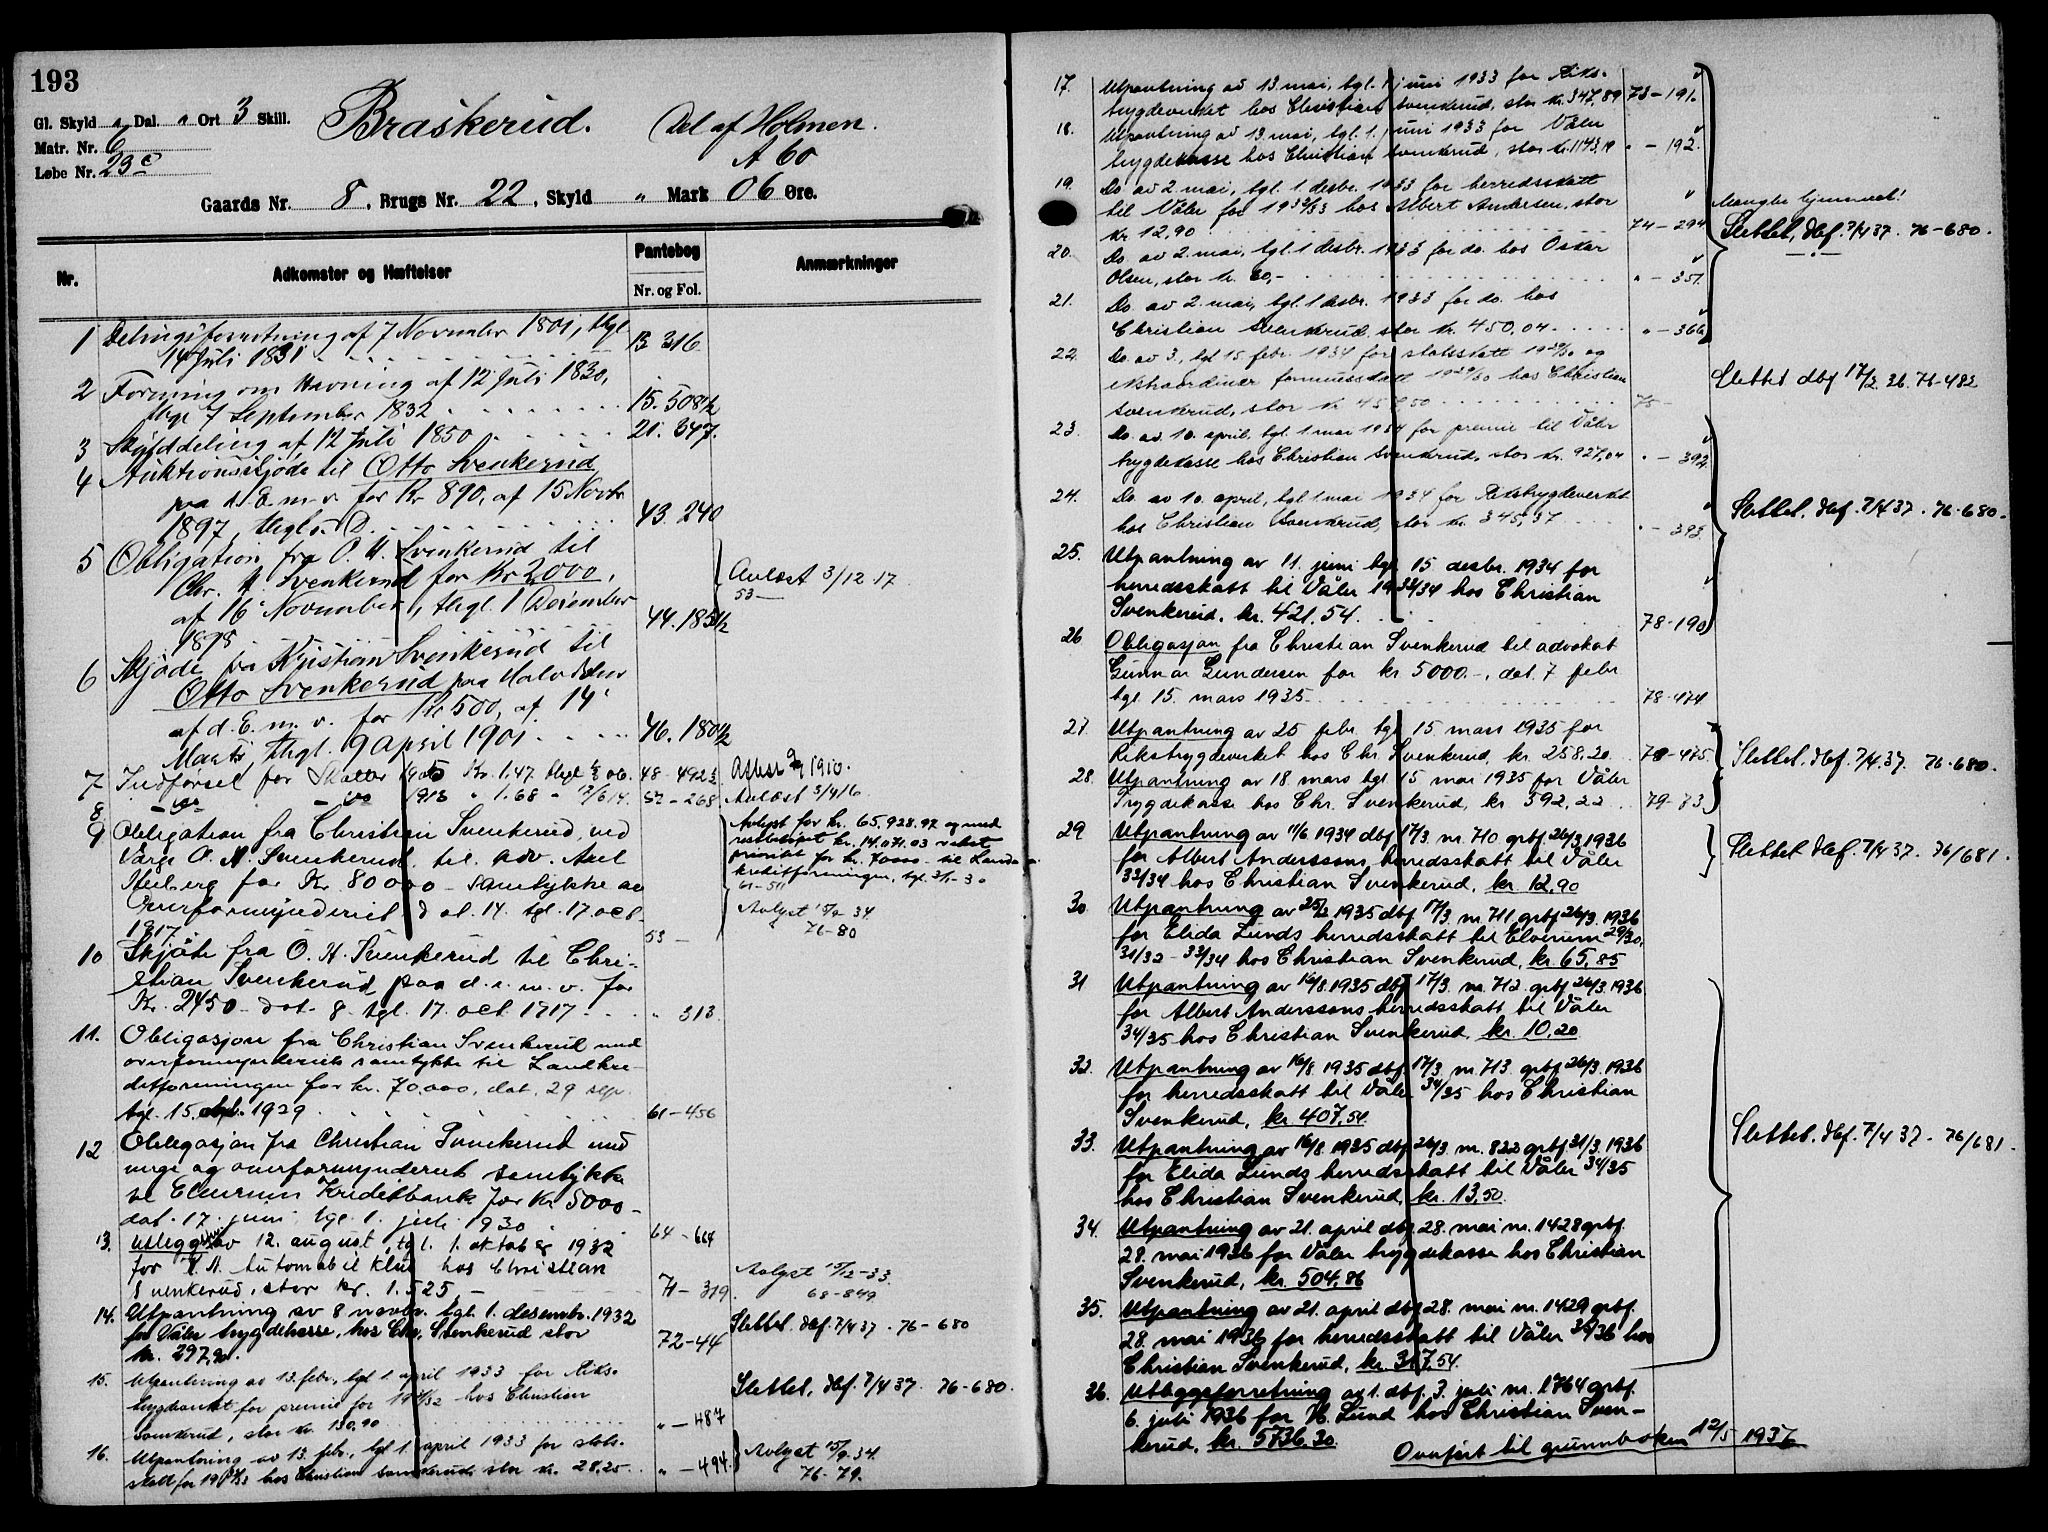 193
Gl. Skyld " Dal. " Ort 3 Skill.
Matr. Nr. 6
Løbe Nr. 23 c
Braskerud. Del af Holmen.
A 60
Gaards Nr. 8, Brugs Nr. 22, Skyld " Mark 06 Øre.
Nr. Adkomster og Hæftelser Pantebog Anmærkninger
Nr. og Fol.
1 Delingsforretning af 7 November 1801, thgl
14 Juli 1831 13 316
2 Forening om Havning af 12 Juli 1830,
thgl 7 September 1832 15. 508 1/2
3 Skylddeling af 12 Juli 1850 21. 347.
4 Auktionsskjøde til Otto Svenkerud
paa d. E. m. v. for Kr 890, af 15 Novbr
1897, thgl s. D. 43. 240
5 Obligation fra O. H. Svenkerud til
Chr. H. Svenkerud for Kr 2,000,
af 16 November, thgl. 1 December
1898 44. 185 1/2
Avlæst 3/12 17
53 —
6 Skjøde fra Kristian Svenkerud til
Otto Svenkerud paa Halvdelen
af d. E. m. v. for Kr 500, af 14
Marts, thgl. 9 April 1901 46. 180 1/2
7 Indførsel for Skatter 1905 Kr. 1.47 thgl 06. 48 - 492 Aflæst 1910.
8 - do - do 1913 " 1.68 " 17/6 14. 52 - 268 Avlæst 3/4 16
9 Obligation fra Christian Svenkerud, ved
Værge O. H. Svenkerud til adv. Axel
Herberg for Kr. 80000 - samtykke av
Overformynderiet dat. 14. tgl. 17. oct.
1917. 53 -
Avlyst for kr. 65,928.97 og med
restbeløpet kr. 14.071.03 veket
prioritet for kr. 70000 - til Lands-
kreditforeningen, tgl. 3/1-30
61-511
Avlyst 15/9 34
76-80
10 Skjøte fra O. H. Svenkerud til Chri-
stian Svenkerud paa d. e. m. v. for
Kr. 2450 - dat. 8 - tgl. 17. oct. 1917 " 313.
11. Obligasjon fra Christian Svenkerud med
overformynderiets samtykke til Landkre-
ditforeningen for kr. 70.000, dat. 29 sep.
tgl. 15. 1929 61-456
12 Obligasjon fra Christian Svenkerud med
verge og overformynderiets samtykke
til Elverum Kreditbank for kr 5000 -
dat. 17. juni, tgl. 1. juli 1930 64-664
13. Utlegg av 12. august, tgl. 1. oktober 1932
for K. N. Automobilklub hos Christian
Svenkerud, stor kr. 1.525,- 71-319.
Avlyst 15/12-33.
68-849
14. Utpantning av 8 novbr. tgl. 1. desembr. 1932
for Våler trygdekasse, hos Chr. Svenkerud stor
kr. 297,90. 72-44
Slettet. dbf. 7/4 37. 76-680
15. Utpantning av 13. febr., tgl 1. april 1933 for Riks-
trygdverket for premie for 1931/32 hos Christian
Svenkerud, stor kr. 130,90 " - 487
Slettet, dbf. 7/4 37. 76-680.
16. Utpantning av 13. febr., tgl 1. april 1933 for stats-
skatt for 19 hos Christian Svenkerud, stor kr. 28,25 " - 494.
Avlyst 15/9.34.
76-79.
17. Utpantning av 13. mai, tgl. 1. juni 1933 for Riks-
trygdeverket hos Christian Svenkerud, stor kr. 347,89 73-191.
18. Utpantning av 13. mai, tgl. 1. juni 1933 for Våler
trygdekasse hos Christian Svenkerud, stor kr. 1143,19 " - 192.
19. Do av 2. mai, tgl. 1 desbr. 1933 for herredsskatt
til Våler for 1932/33 hos Albert Andersen, stor
kr 12,90 74-294
Mangler hjemmel!
Slettet, dbf. 7/4 37. 76-680.
20. Do av 2. mai, tgl. 1 desbr. 1933 for do. hos Oskar
Olsen, stor kr. 20,- " - 351.
21. Do. av 2. mai, tgl. 1 desbr. 1933 for do. hos
Christian Svenkerud stor kr. 450,04 " - 366
22. Do. av 3, tgl 15. febr. 1934 for statsskatt 1929/30 og
ekstraordinær formuesskatt 1929/30 hos Christian
Svenkerud, stor kr 457,50 75 -
Slettet dbf 17/2 36. 71-482
23. Do. av 10. april, tgl. 1 mai 1934 for premie til Våler
trygdekasse hos Christian Svenkerud, stor kr. 927,04 " - 392.
24. Do av 10. april, tgl. 1 mai 1934 for Rikstrygdeverket
hos Christian Svenkerud, stor kr. 345,37 " - 393.
Slettet. dbf. 7/4 37. 76-680.
25. Utpantning av 11. juni tgl. 15 desbr. 1934 for
herredsskatt til Våler 1933/34 hos Christian
Svenkerud, kr. 421.54. 78-190
26 Obligasjon fra Christian Svenkerud til advokat
Gunnar Gundersen for kr 5000.-, dat. 7 febr
tgl. 15. mars 1935 78-474
27. Utpantning av 25 febr. tgl. 15. mars 1935 for
Rikstrygdeverket hos Chr. Svenkerud, kr. 258.20. 78-475.
Slettet. dbf. 7/4.37. 76-680.
28. Utpantning av 18 mars tgl. 15 mai 1935 for Våler
Trygdekasse hos Chr. Svenkerud, kr. 592,22 79-73.
29 Utpantning av 11/6 1934 dbf 17/3. nr. 710 grbf. 26/3 1936
for Albert Anderssons herredsskatt til Våler
33/34 hos Christian Svenkerud, kr. 12.90
Slettet dbf. 7/4 37. 76/681.
30. Utpantning av 25/2 1935 dbf 17/3. nr. 711 grbf 26/3. 1936
for Elida Lunds herredsskatt til Elverum 29/30,
31/32 - 33/34 hos Christian Svenkerud, kr. 65,85
31 Utpantning av 16/8. 1935 dbf 17/3. nr. 712. grbf 26/3. 1936
for Albert Anderssons herredsskatt til Våler
34/35 hos Christian Svenkerud, kr. 10.20
32. Utpantning av 16/8. 1935 dbf. 17/3. nr. 713. grbf 26/3. 1936
for herredsskatt til Våler 34/35 hos Christian
Svenkerud, kr 407,54.
33. Utpantning av 16/8 1935 dbf 26/3. nr. 822 grbf 31/3. 1936
for Elida Lunds herredsskatt til Våler 34/35
hos Christian Svenkerud, kr. 13.50.
Slettet. dbf. 7/4 37. 76/681.
34. Utpantning av 21. april dbf 28. mai nr. 1428 grbf.
28. mai 1936 for Våler trygdekasse hos Christian
Svenkerud, kr. 504,86
35. Utpantning av 21. april dbf 28. mai nr. 1429 grbf.
28. mai 1936 for herredsskatt til Våler 35/36 hos
Christian Svenkerud, kr. 317,54.
36. Utleggsforretning av 1. dbf. 3. juli nr. 1764 grbf.
6. juli 1936 for H. Lund hos Christian Sven-
kerud, kr. 5736.30.
Overført til grunnboken 12/5 1937